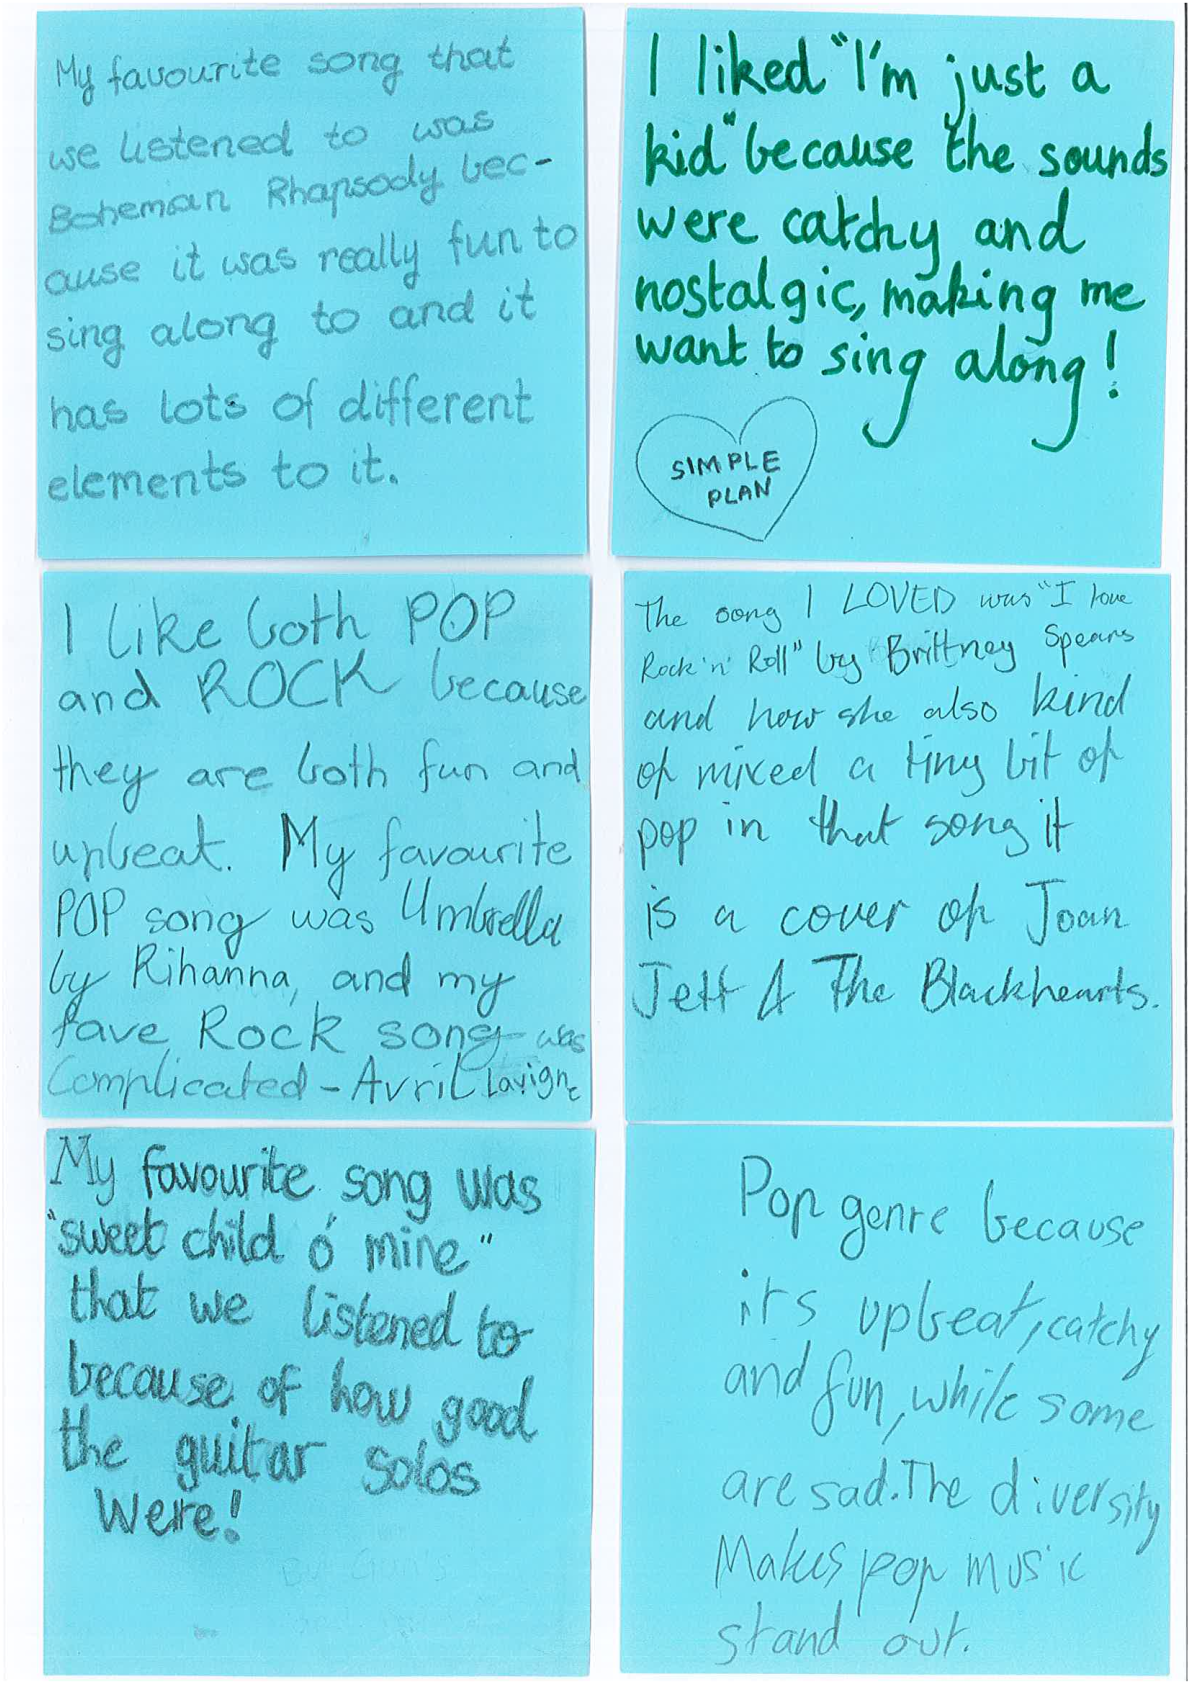 My favourite song that
we listened to was
Boheman Rhapsody bec-
ause it was really fun to
sing along to and it
has lots of different
elements to it.
I liked "I'm just a
kid" because the sounds
were catchy and
nostalgic, making me
want to sing along!
SIMPLE
PLAN
I like both POP
and ROCK because
they are both fun and
upbeat. My favourite
POP song was Umbrella
by Rihanna, and my
fave Rock song was
Complicated - Avril Lavigne
The song I LOVED was "I love
Rock 'n' Roll" by Brittney Spears
and how she also kind
of mixed a tiny bit of
pop in that song it
is a cover of Joan
Jett & The Blackhearts.
My favourite song was
"sweet child o' mine"
that we listened to
because of how good
the guitar solos
Were!
Pop genre because
it's upbeat, catchy
and fun, while some
are sad. The diversity
Makes pop music
stand out.